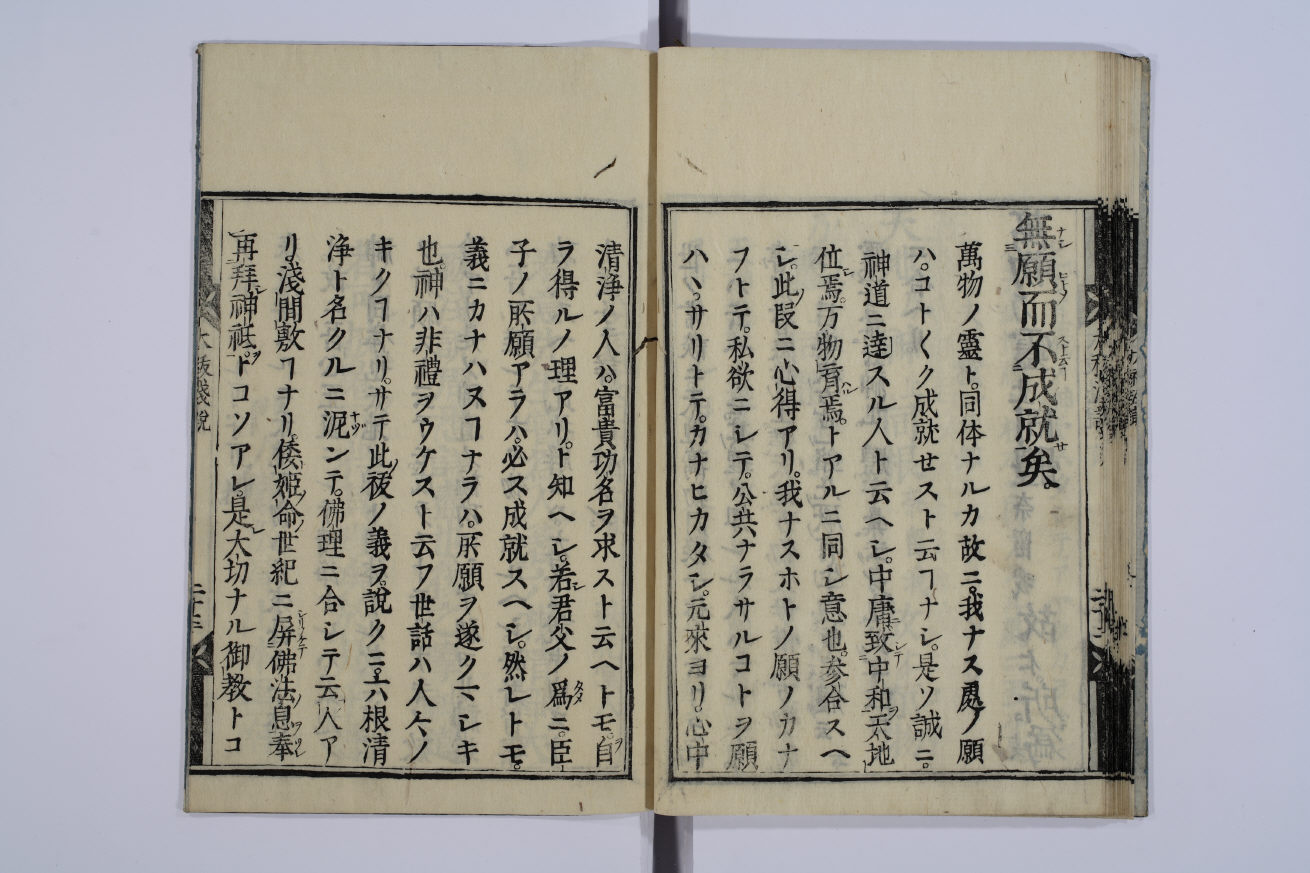 無願而不成就矣。
萬物ノ靈ト。同体ナルカ故ニ。我ナス處ノ願
ハ。コト〱ク成就せスト云ヿナシ。是ソ誠ニ。
神道ニ達スル人ト云ヘシ。中庸致中和天地
位焉。万物育焉。トアルニ同シ意也。参合スヘ
シ。此段ニ心得アリ。我ナスホトノ願ノカナ
フトテ。私欲ニシテ。公共ナラサルコトヲ願
ハヽ。サリトテ。カナヒカタシ。元來ヨリ。心中
清浄ノ人ハ。富貴功名ヲ求スト云ヘトモ。自
ラ得ルノ理アリ。ト知ヘシ。若君父ノ爲ニ。臣
子ノ所願アラハ。必ス成就スヘシ。然レトモ。
義ニカナハヌヿナラハ。所願ヲ遂クマシキ
也。神ハ非禮ヲウケスト云フ世話ハ人々ノ
キクヿナリ。サテ此祓ノ義ヲ。說クニ。六根清
浄ト名クルニ泥ンテ。佛理ニ合シテ云人ア
リ。淺間敷ヿナリ。倭姫命世紀ニ屏佛法息奉
再拜神祇。トコソアレ。是大切ナル御教トコ
大祓淺說
二十三